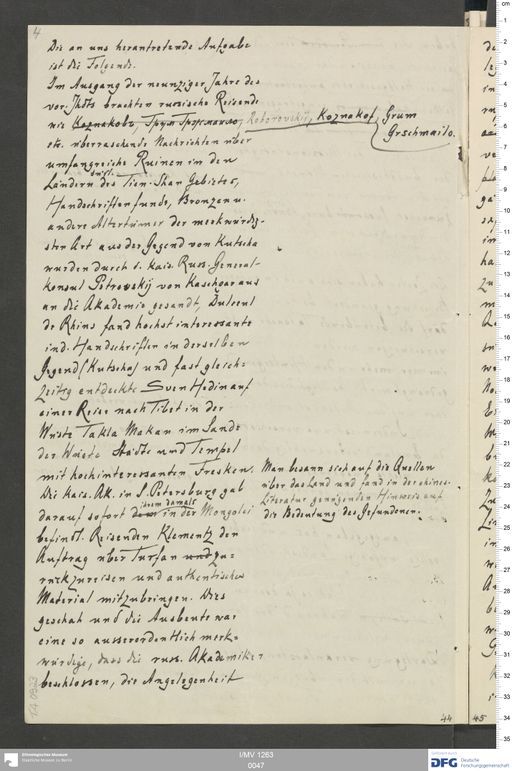 4
Die an uns herantretende Aufgabe
ist die Folgende.
Im Ausgang der neunziger Jahre des
vor. Jhdts brachten russische Reisende
wie Koznakobz, Roborovskij, Koznakof, Grum
Grschmailo.
etc. überraschende Nachrichten über
umfangreiche Ruinen in den
Ländern des Tien-Shan Gebietes,
Handschriftenfunde, Bronzen u.
andere Altertümer der merkwürdig-
sten Art aus der Gegend von Kutscha
wurden durch d. kais. Russ. General-
konsul Petrowskij von Kaschgar aus
an die Akademie gesandt, Dutreul
de Rhins fand höchst interessante
ind. Handschriften in derselben
Gegend (Kutscha) und fast gleich-
zeitig entdeckte Sven Hedin auf
einer Reise nach Tibet in der
Wüste Takla Makan im Sande
der Wüste Städte und Tempel
mit hochinteressanten Fresken.
Die kais. Ak. in S. Petersburg gab
darauf sofort dem ihrem damals in der Mongolei
befindl. Reisenden Klementz den
Auftrag über Turfan und zu-
rückzureisen und authentisches
Material mitzubringen. Dies
geschah und die Ausbeute war
eine so ausserordentlich merk-
würdige, dass die russ. Akademiker
beschlossen, die Angelegenheit
Man besann sich auf die Quellen
über das Land und fand in der chines.
Literatur genügenden Hinweis auf
die Bedeutung des Gefundenen.
TA 0923
44
45
Ethnologisches Museum
Staatliche Museen zu Berlin
I/MV 1263
0047
Gefördert durch
DFG Deutsche
Forschungsgemeinschaft